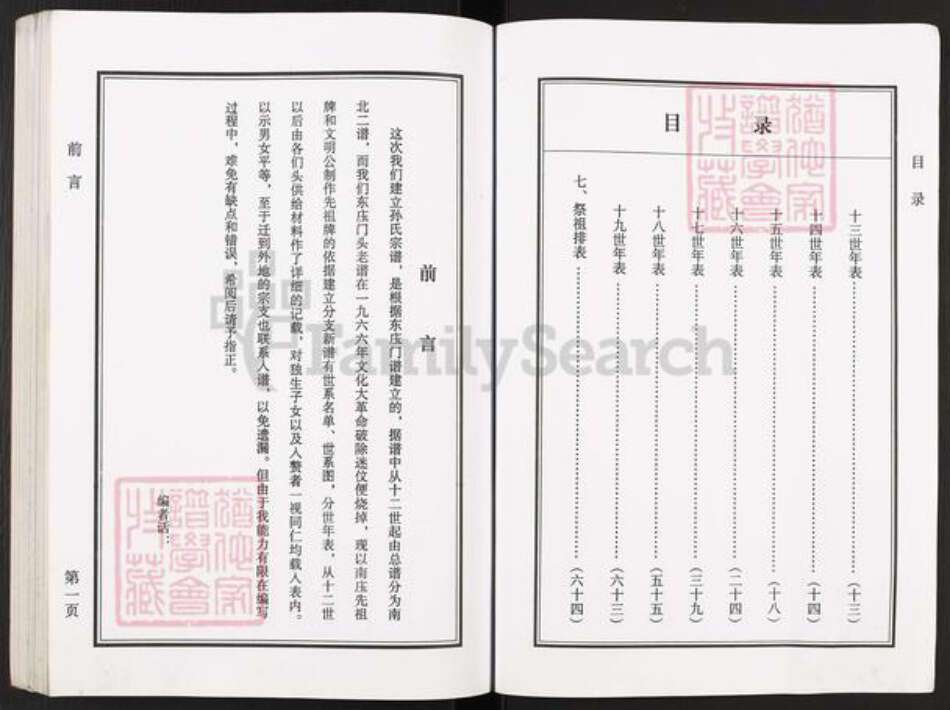 目录
目录
十三世年表(十三)
十四世年表(十四)
十五世年表(十八)
十六世年表(二十四)
十七世年表(三十九)
十八世年表(五十五)
十九世年表(六十三)
七、祭祖排表(六十四)
前言
这次我们建立孙氏宗谱，是根据东压门谱建立的，据谱中从十二世起由总谱分为南
北二谱，而我们东压门头老谱在一九六六年文化大革命破除迷仪便烧掉，现以南压先祖
牌和文明公制作先祖牌的依据建立分支新谱有世系名单、世系图，分世年表，从十二世
以后由各们头供给材料作了详细的记载，对独生子女以及入赘者一视同仁均载入表内。
以示男女平等，至于迁到外地的宗支也联系入谱，以免遗漏。但由于我能力有限在编写
过程中，难免有缺点和错误，希阅后请予指正。
编者话：
前言
第一页
FamilySearch
谱学会
收藏
谱学会
收藏